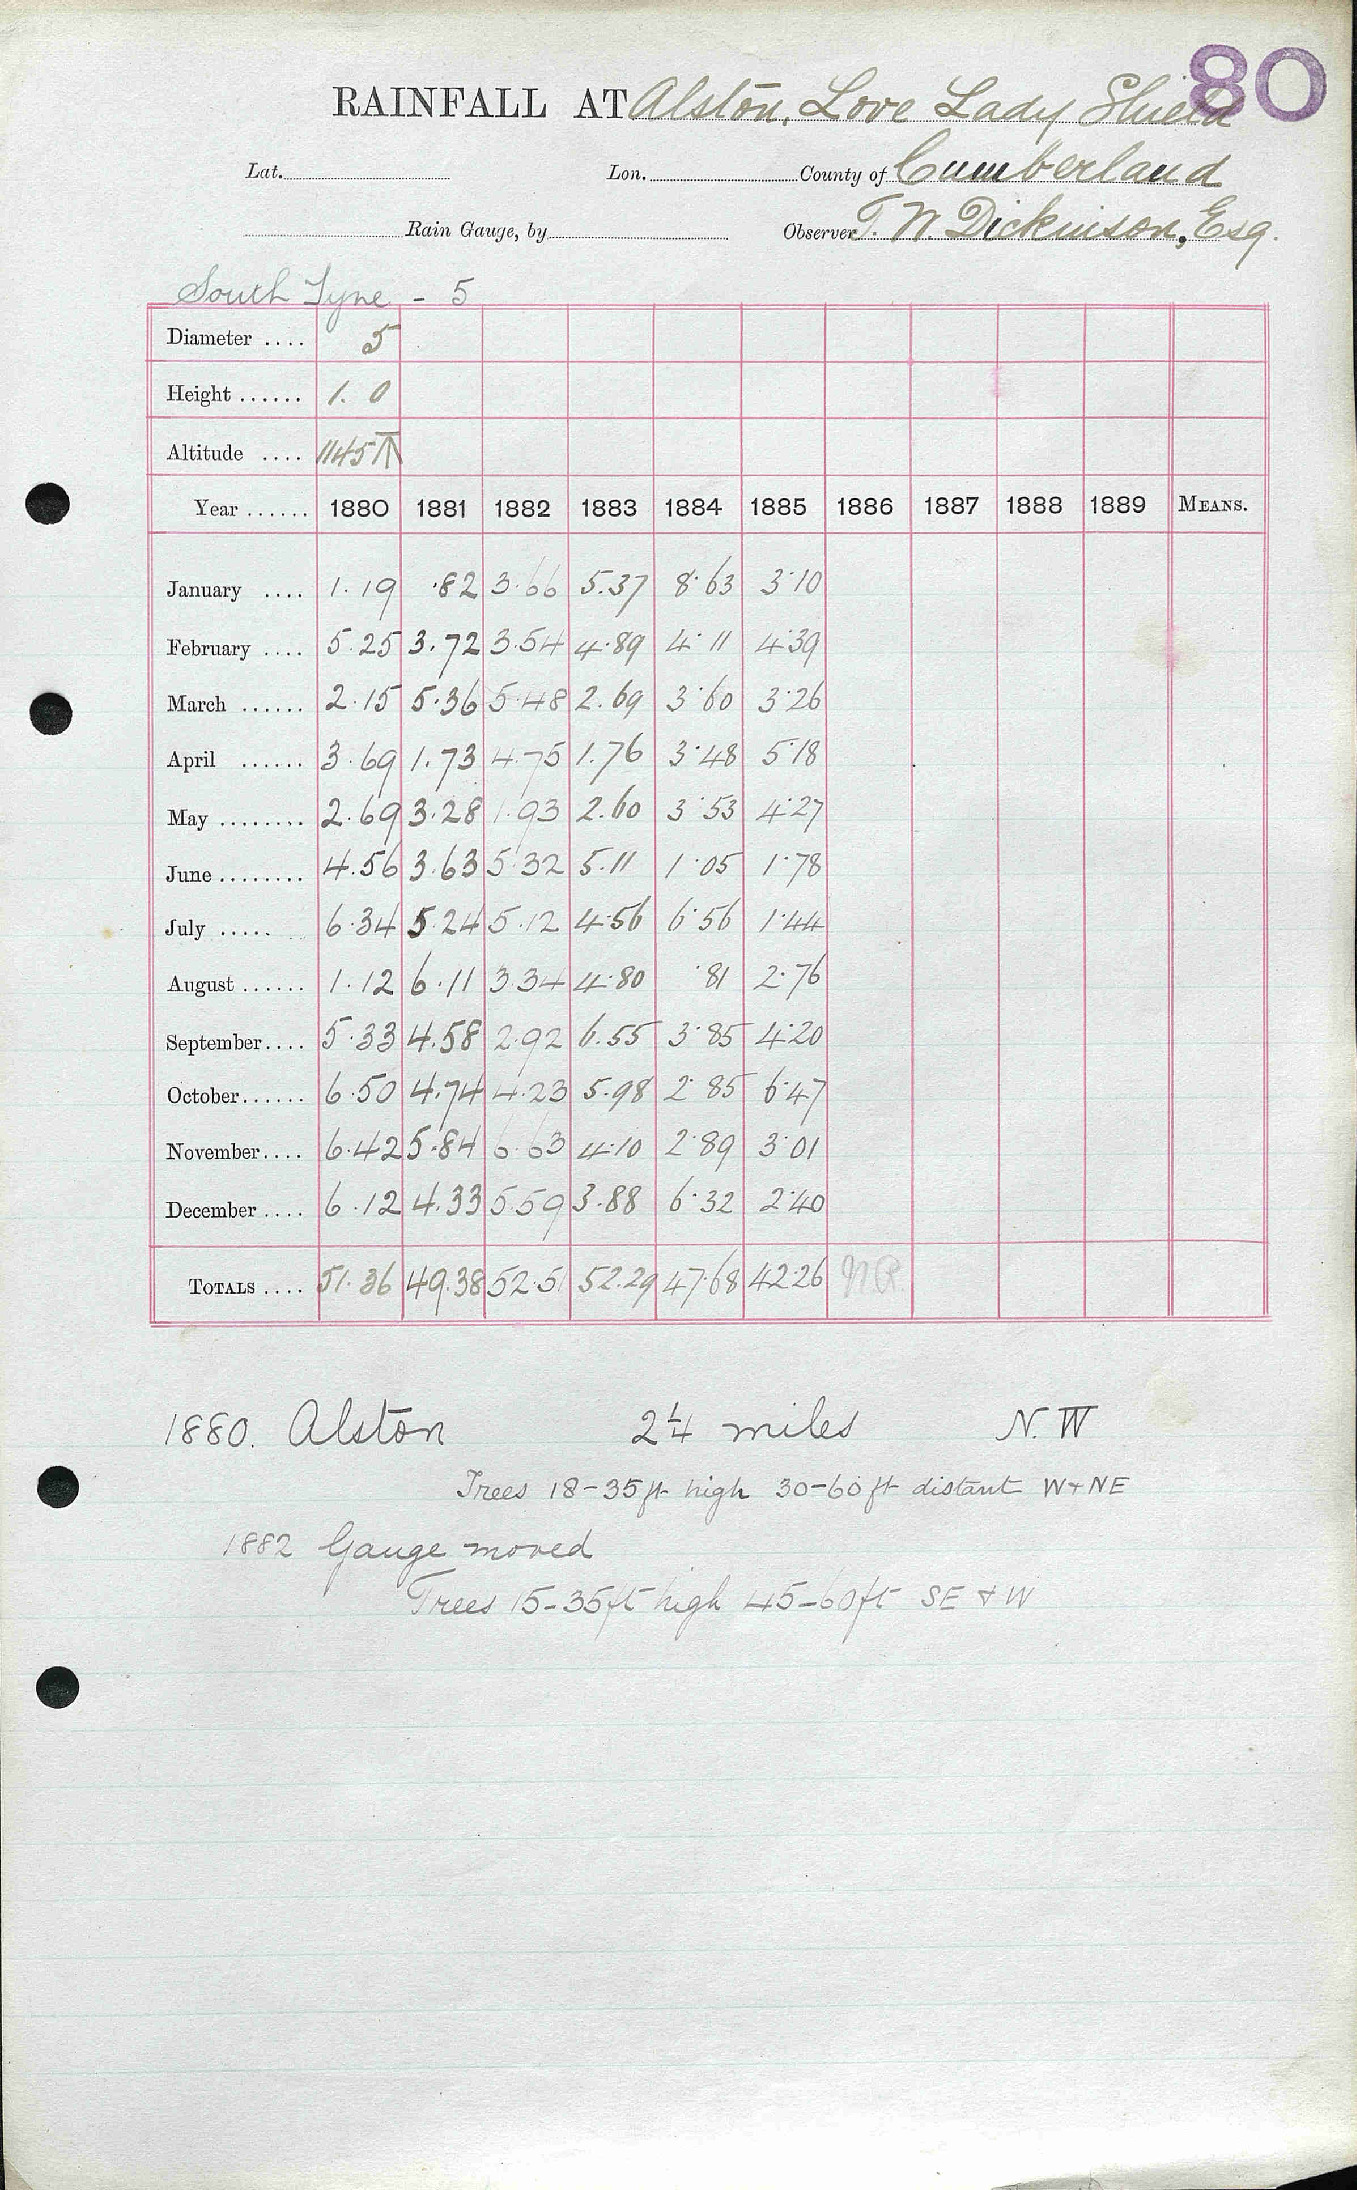 80
RAINFALL AT Alston, Love Lady Shield
Lat. Lon. County of Cumberland
Rain Gauge, by Observer T. W. Dickinson, Esq.
South Tyne - 5
Diameter .... 5
Height ...... 1. 0
Altitude .... 1145 T
Year ...... 1880 1881 1882 1883 1884 1885 1886 1887 1888 1889 MEANS.
January .... 1.19 .82 3.66 5.37 8.63 3.10
February .... 5.25 3.72 3.54 4.89 4.11 4.39
March ...... 2.15 5.36 5.48 2.69 3.60 3.26
April ...... 3.69 1.73 4.75 1.76 3.48 5.18
May ........ 2.69 3.28 1.93 2.60 3.53 4.27
June ........ 4.56 3.63 5.32 5.11 1.05 1.78
July ..... 6.34 5.24 5.12 4.56 6.56 1.44
August ...... 1.12 6.11 3.34 4.80 .81 2.76
September.... 5.33 4.58 2.92 6.55 3.85 4.20
October...... 6.50 4.74 4.23 5.98 2.85 6.47
November.... 6.42 5.84 6.63 4.10 2.89 3.01
December .... 6.12 4.33 5.59 3.88 6.32 2.40
TOTALS .... 51.36 49.38 52.51 52.29 47.68 42.26 N.R.
1880. Alston 2¼ miles N.W
Trees 18-35ft high 30-60ft distant W+NE
1882 Gauge moved
Trees 15-35ft high 45-60ft SE & W